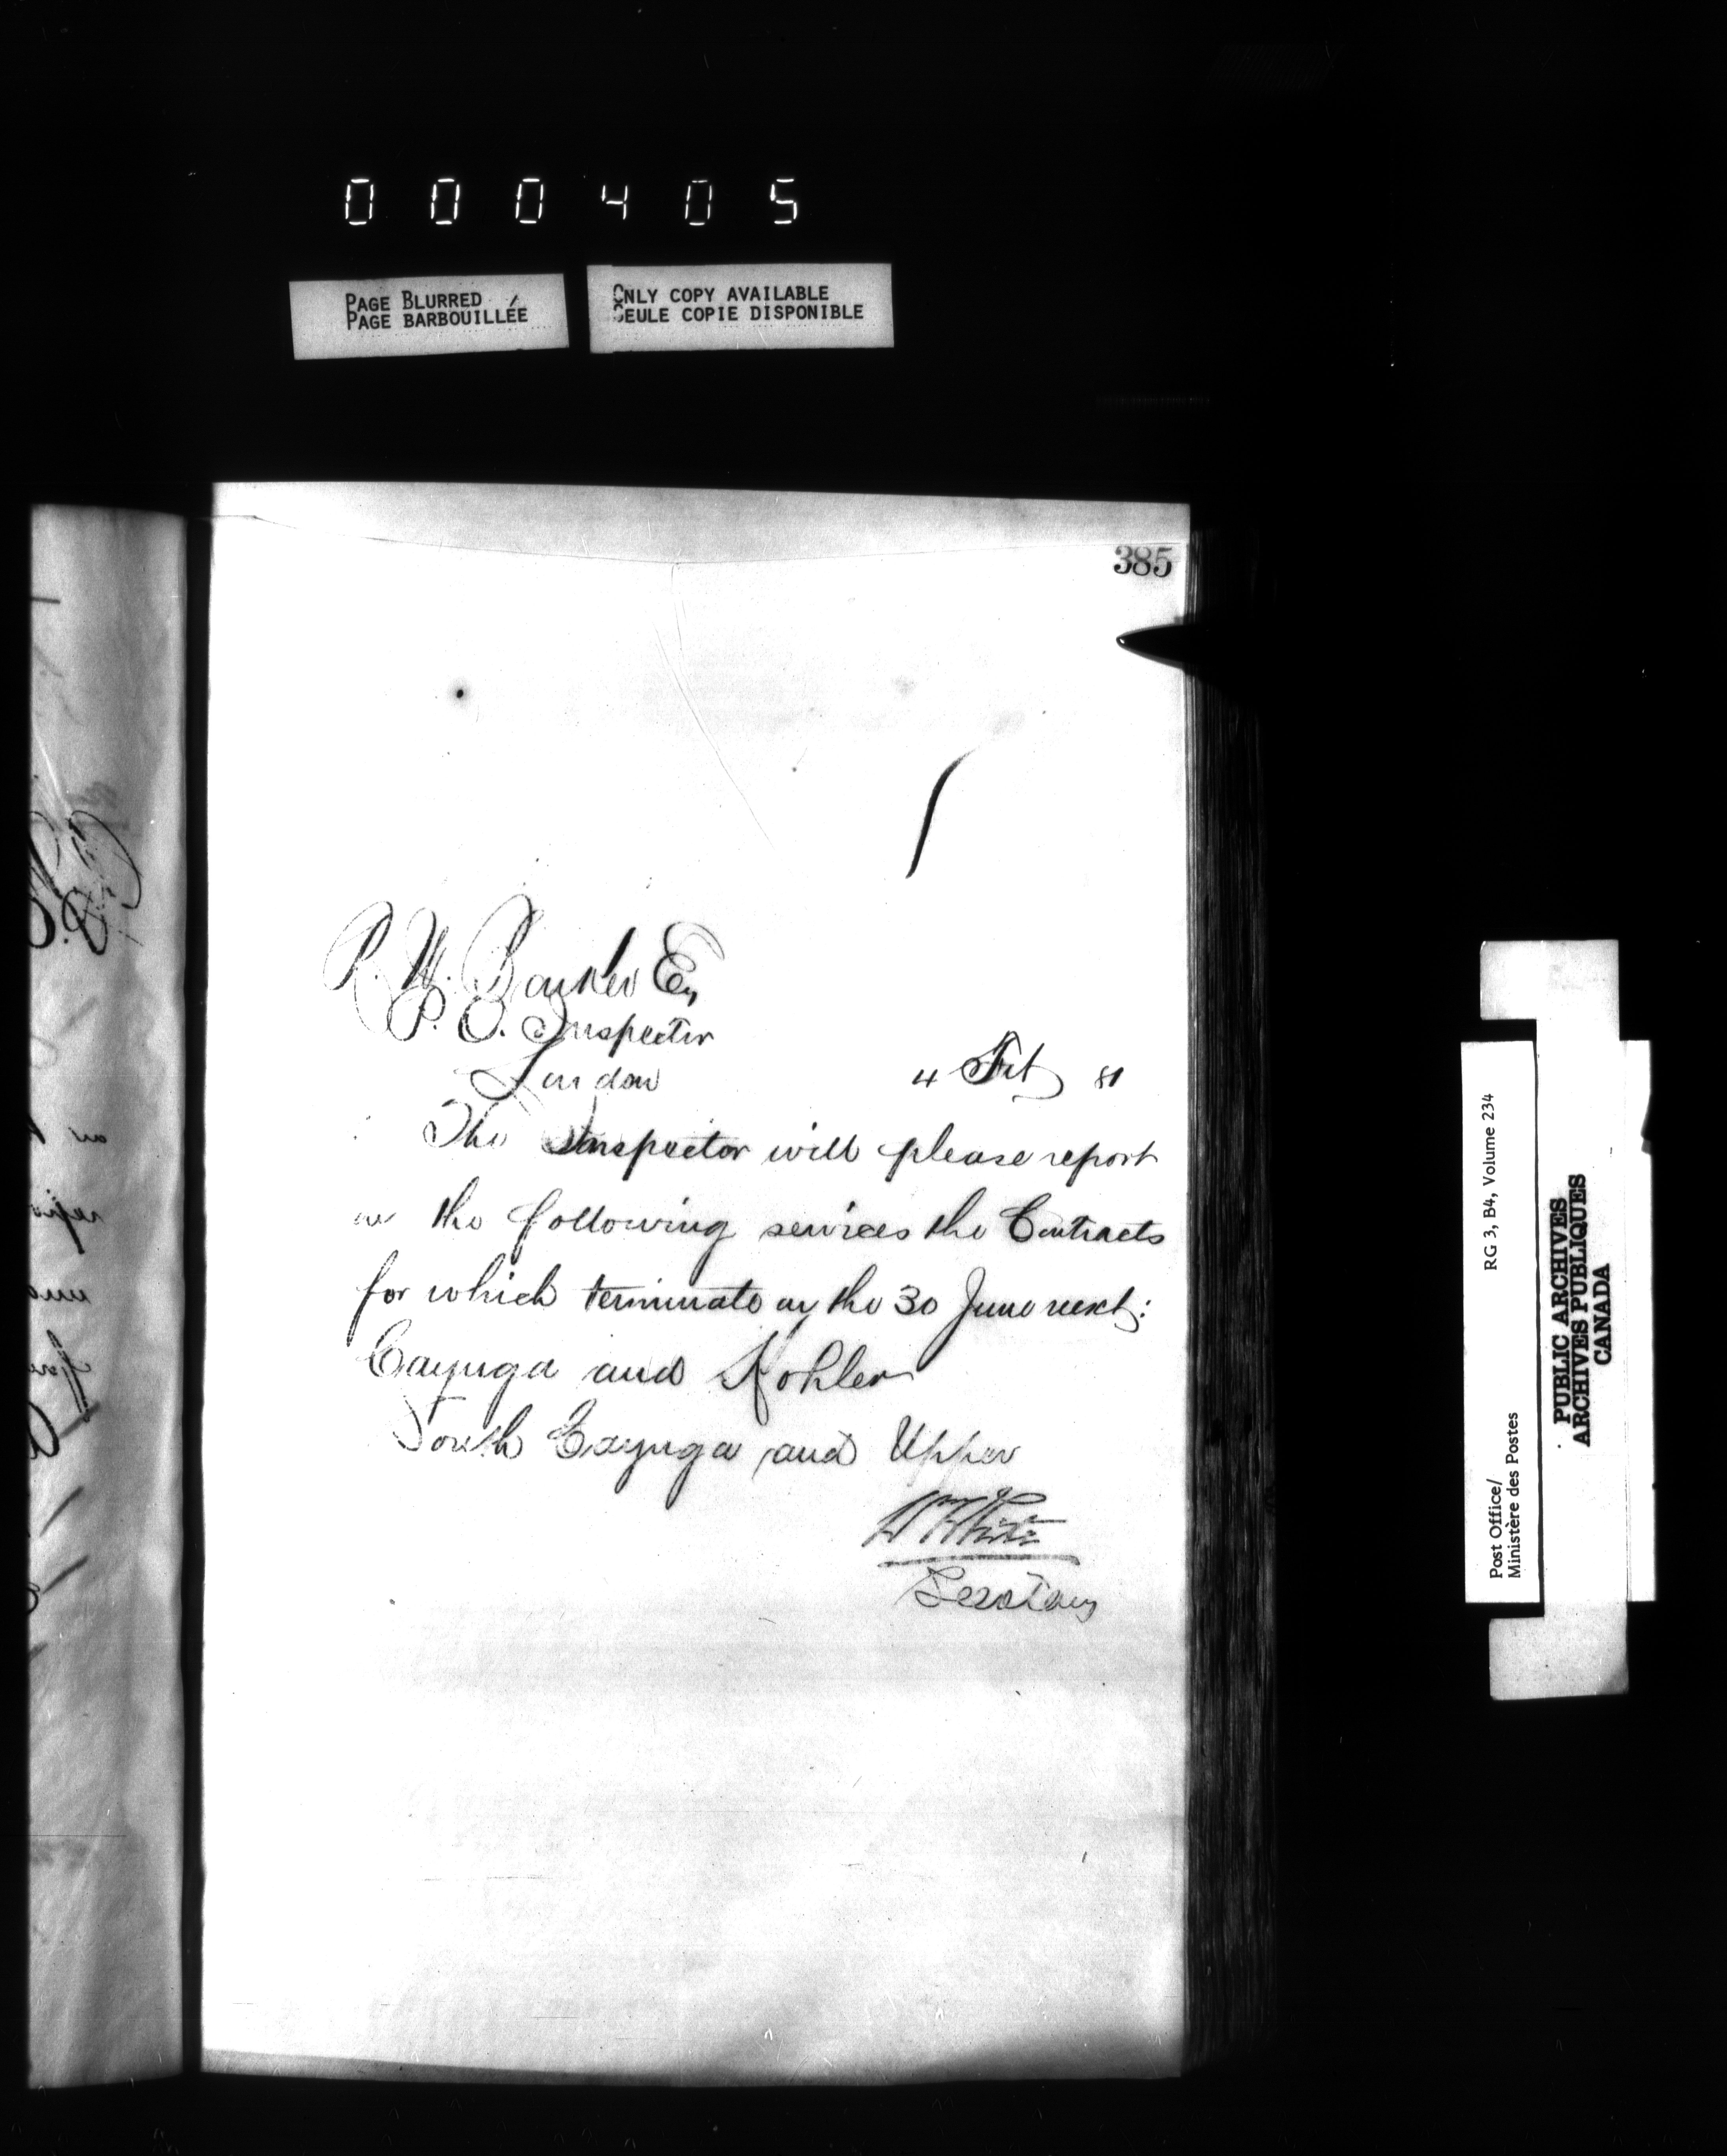 000405
PAGE BLURRED
PAGE BARBOUILLÉE
ONLY COPY AVAILABLE
SEULE COPIE DISPONIBLE
385
R. W. Barker Esq
P. O. Inspector
London
4 Feb 81
The Inspector will please report
on the following services the Contracts
for which terminate on the 30 June next:
Cayuga and Kohler
South Cayuga and Upper
W White
Secretary
Post Office/
Ministère des Postes
RG 3, B4, Volume 234
PUBLIC ARCHIVES
ARCHIVES PUBLIQUES
CANADA